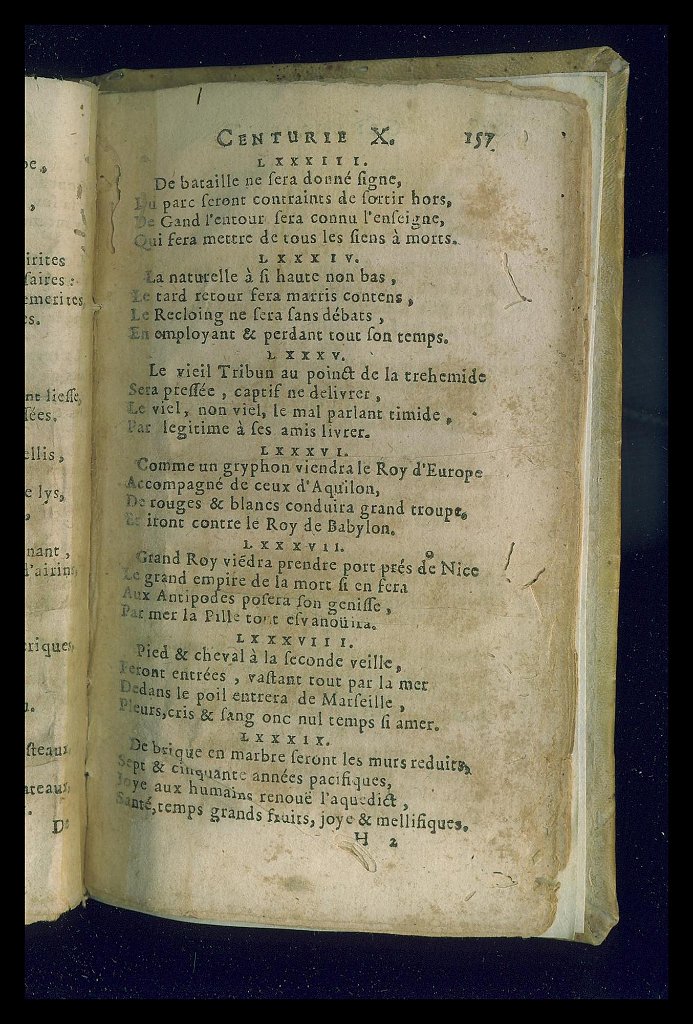 be,
,
irites
ſaires :
emerites
es.
nt lieſſe,
ſées.
ellis,
e lys,
,
nant,
l'airin,
riques,
.
ſteaux,
ateaux,
.
De
CENTURIE X. 157
LXXXIII.
De bataille ne ſera donné ſigne,
Du parc ſeront contraints de ſortir hors,
De Gand l'entour ſera connu l'enſeigne,
Qui fera mettre de tous les ſiens à morts.
LXXXIV.
La naturelle à ſi haute non bas,
Le tard retour fera marris contens,
Le Recloing ne ſera ſans débats,
En employant & perdant tout ſon temps.
LXXXV.
Le vieil Tribun au poinct de la trehemide
Sera preſſée, captif ne delivrer,
Le viel, non viel, le mal parlant timide,
Par legitime à ſes amis livrer.
LXXXVI.
Comme un gryphon viendra le Roy d'Europe
Accompagné de ceux d'Aquilon,
De rouges & blancs conduira grand troupe,
Et iront contre le Roy de Babylon.
LXXXVII.
Grand Roy viēdra prendre port prés de Nice
Le grand empire de la mort ſi en fera
Aux Antipodes poſera ſon geniſſe,
Par mer la Pille tout eſvanoüira.
LXXXVIII.
Pied & cheval à la ſeconde veille,
Feront entrées, vaſtant tout par la mer
Dedans le poil entrera de Marſeille,
Pleurs, cris & ſang onc nul temps ſi amer.
LXXXIX.
De brique en marbre ſeront les murs reduits,
Sept & cinquante années pacifiques,
Joye aux humains renouë l'aquedict,
Santé, temps grands fruits, joye & mellifiques.
H 2